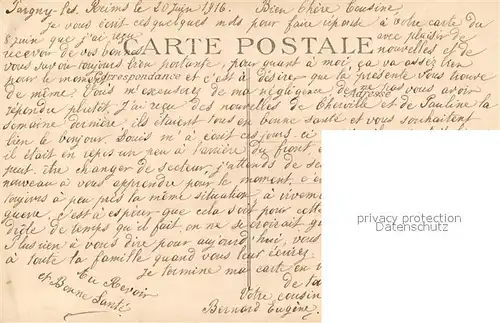 Pargny-les-Reims le 20 juin 1916. Bien Chère Cousine,
je vous écris ces quelques mots pour faire réponse à votre carte du
8 juin que j'ai reçu avec plaisir de
CARTE POSTALE
recevoir de vos bonnes nouvelles et de
vous savoir toujours bien portante, pour quant à moi, ça va assez bien
pour le moment et c'est à désirer que la présente vous trouve
Correspondance
de même. Vous m'excuserez de ma négligence de ne pas vous avoir
Adresse
répondu plutôt. J'ai reçu des nouvelles de Cheville et de Pauline la
semaine dernière, ils étaient tous en bonne santé et vous souhaitent
bien le bonjour. Louis m'a écrit ces jours. ci
il était en repos un peu à l'arrière du front
peut-être changer de secteur, j'attends de ses
nouveau à vous apprendre pour le moment, c'e
toujours à peu près la même situation, à vivem
guerre, c'est à espérer que cela soit pour cette
drôle de temps qu'il fait, on ne se croirait
Plus rien à vous dire pour aujourd'hui, vous
à toute la famille quand vous leur écrirez.
Je termine ma carte en v
Au Revoir
et Bonne Santé
de to
Votre cousin
Bernard Eugène.
privacy protection
by MySecured